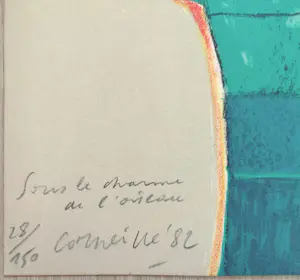 Sous le charme
de l'oiseau
28/150 Corneille '82